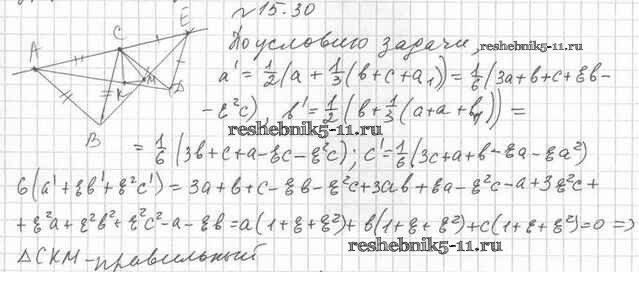 №15.30
E
C
A
По условию задачи,
reshebnik5-11.ru
a' = 1/2(a + 1/3(b+c+a₁)) = 1/6(3a+b+c+εb-
M
K
D
-ε²c), b' = 1/2(b + 1/3(a+a+b₁)) =
B
reshebnik5-11.ru
= 1/6(3b+c+a-εc-ε²c); c' = 1/6(3c+a+b-εa-εa²)
6(a'+εb'+ε²c') = 3a+b+c-εb-ε²c+3εb+εa-ε²c-a+3ε²c+
+ε²a+ε²b²+ε²c²-a-εb = a(1+ε+ε²)+b(1+ε+ε²)+c(1+ε+ε²)=0 =>
reshebnik5-11.ru
ΔCKM - правильный